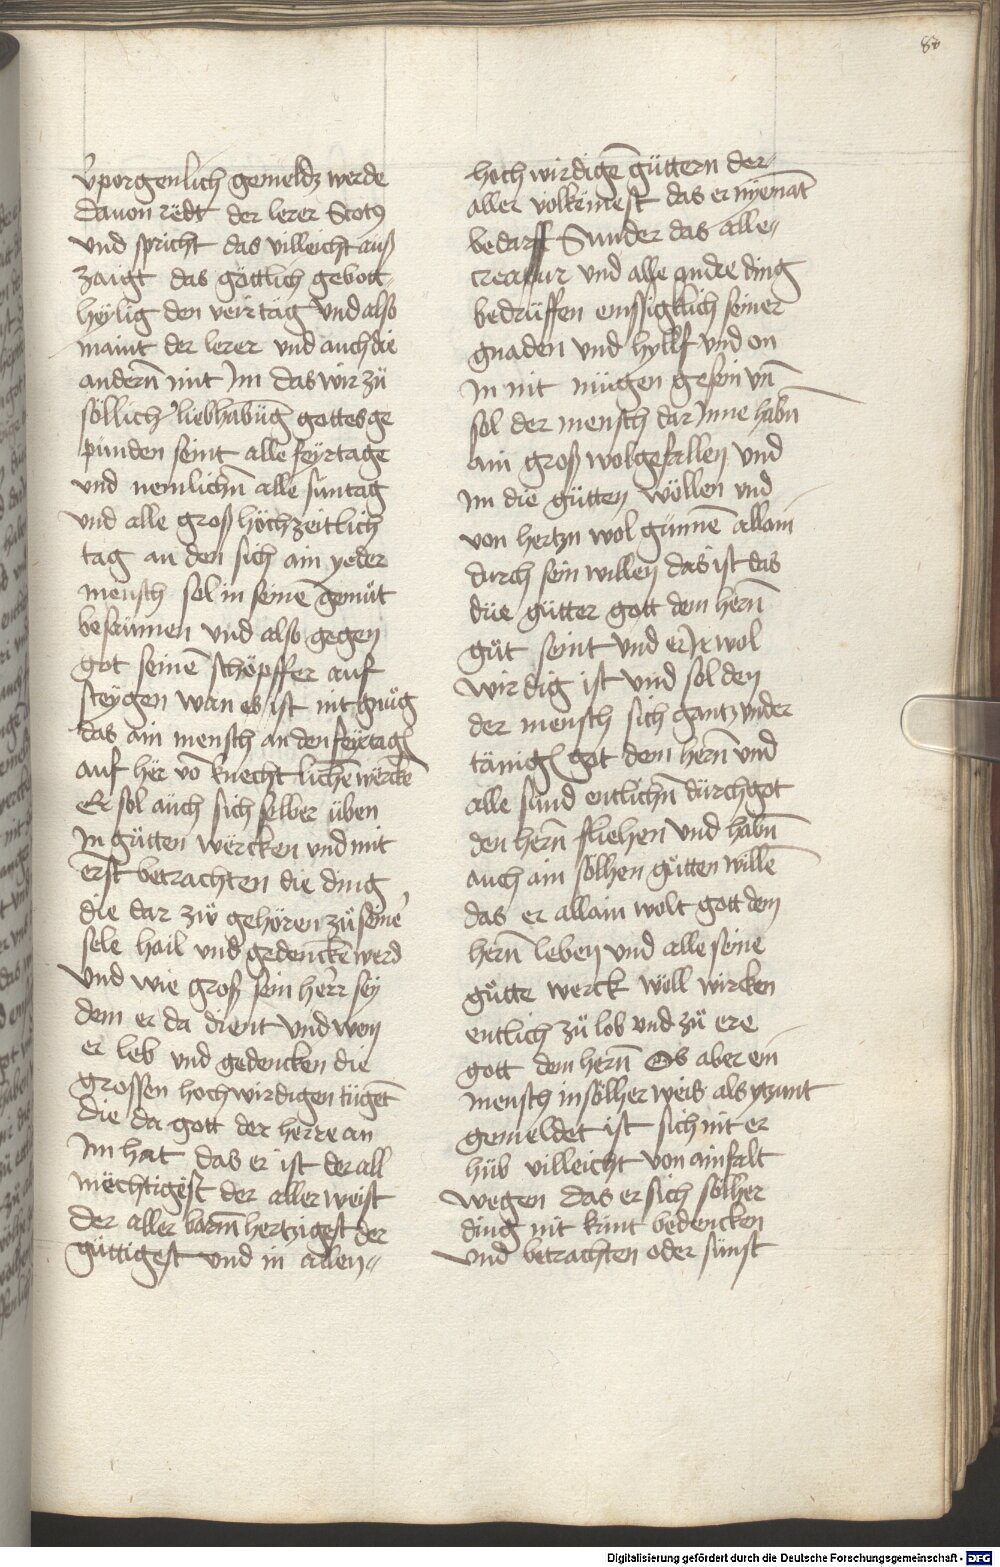 80
v̓porgenlich gemeldz werde
Dauon redt der lerer Scotꝰ
vnd spricht das villeicht auß
zaigt das göttlich gebott
heylig den veirtag vnd also
maint der lerer vnd auch die
andern̄ mit Im das wir zü
söllich liebhabūg gottes ge
punden seint alle feyrtage
vnd nemlichn̄ alle suntag
vnd alle groß höchzeitlich
tag an den sich ain yeder
mensch sol in seinē gemüt
besinnen vnd also gegen
got seinē schöpffer auf
steygen wan es ist nit gnůg
das ain mensch an den feyrtagē
auf hör vō knecht lichē wercke
Er sol auch sich selber üben
In gůtten wercken vnd mit
erst betrachten die ding
die dar zü gehören zů seine᷒
sele hail vnd gedenckē werd
vnd wie groß sein herr sey
dem er da dient vnd wen
er leb vnd gedencken die
grossen hochwirdigen tügēt
die da gott der herre an
Im hat das er ist der all
mechtigest der aller weist
der aller barm̄hertzigest der
güttigest vnd in allen⸗
hoch wirdigē güttern der⸗
aller volkmēst das er nyemāt
bedarff Sunder das alle⸗
creatur vnd alle andre ding
bedrüffen emssigklich seiner
gnaden vnd hyllf vnd on
In nit mügen gesein vn̄
sol der mensch dar Inne habn̄
ain groß wolgefallen vnd
im die gütten wöllen vnd
von hertzn wol günnē allain
durch sein willen das ist das
die gütter gott dem hern̄
gůt seint vnd er Ir wol
wirdig ist vnd sol den
der mensch sich gantz vnder
tänigē got dem hern̄ vnd
alle sünd entlichn̄ dürch got
den hern̄ fliehen vnd habn̄
auch ain sölhen gůtten willē
das er allain wolt gott dem
hern̄ leben vnd alle seine
gůtte werck wöll wircken
entlich zů lob vnd zů ere
gott dem hern̄ Ob aber ein
mensch in sölher weis als yzunt
gemeldet ist sich nit er
hüb villeicht von ainfalt
wegen das er sich sölher
ding nit künt bedencken
vnd betrachten oder sünst
Digitalisierung gefördert durch die Deutsche Forschungsgemeinschaft - DFG